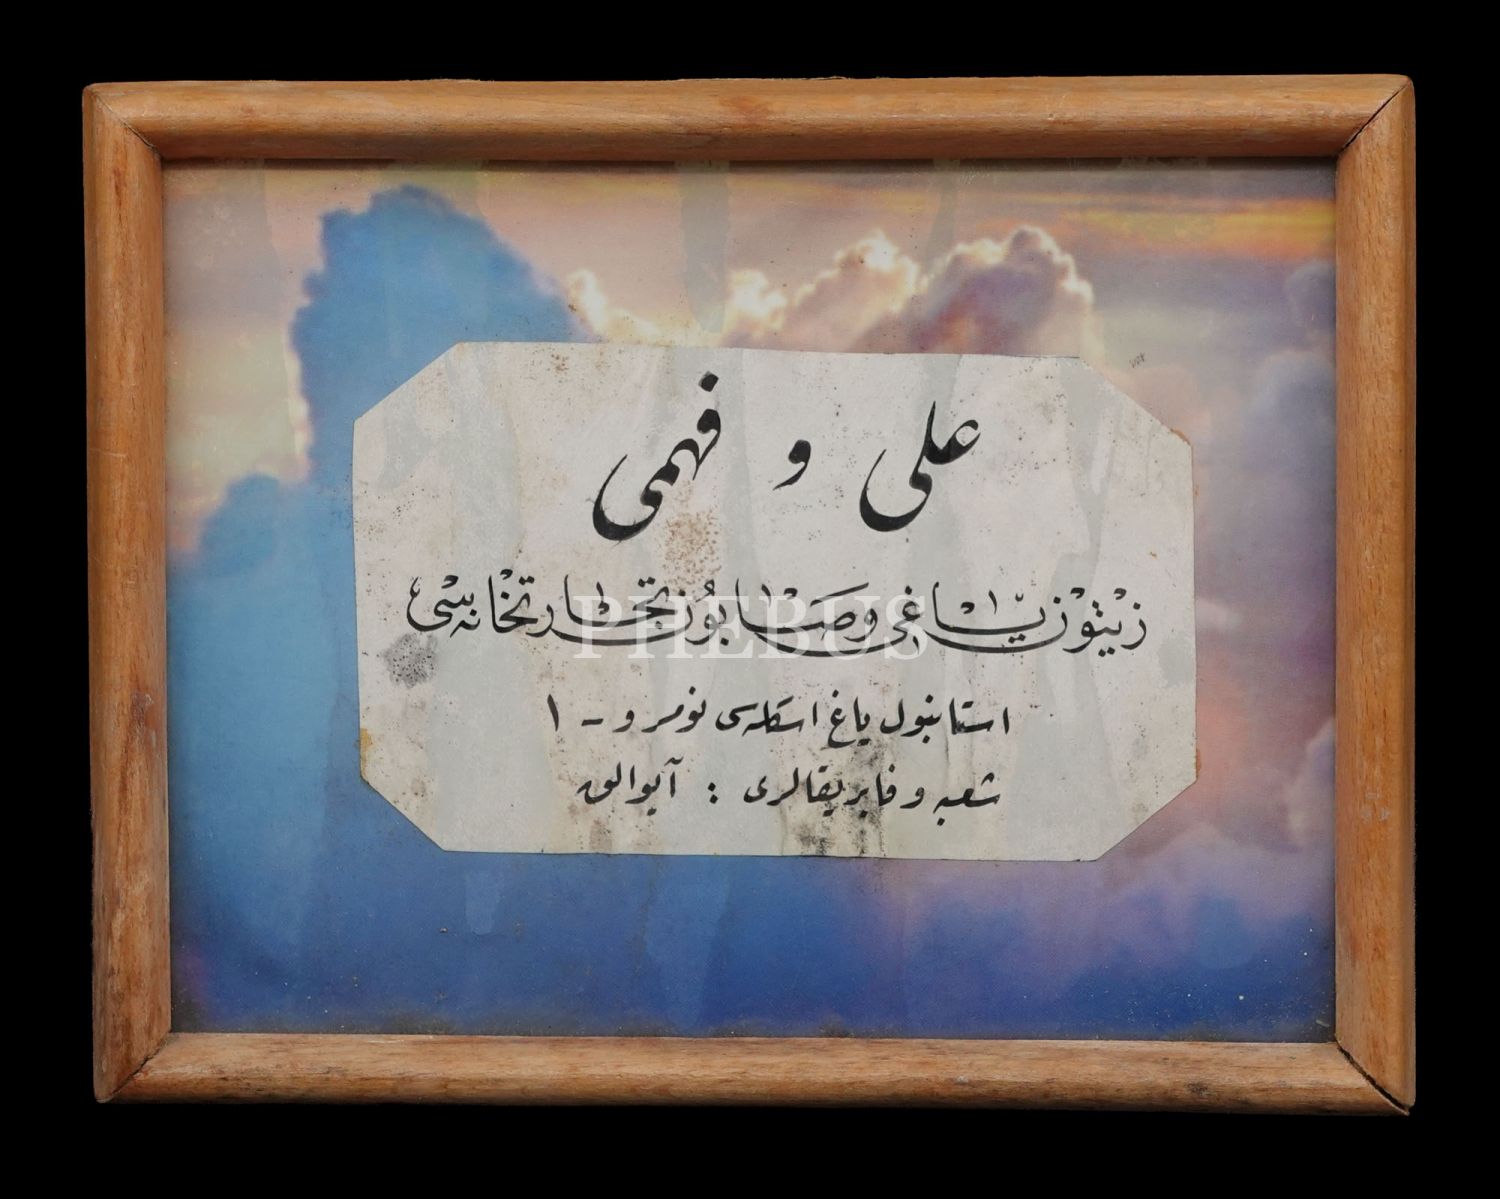 علی و فهمی
زیتون یاغی و صابون تجارتخانه‌سی
استانبول یاغ اسکله‌سی نومرو - ١
شعبه و فابریقالری : آیوالق
PHEBUS